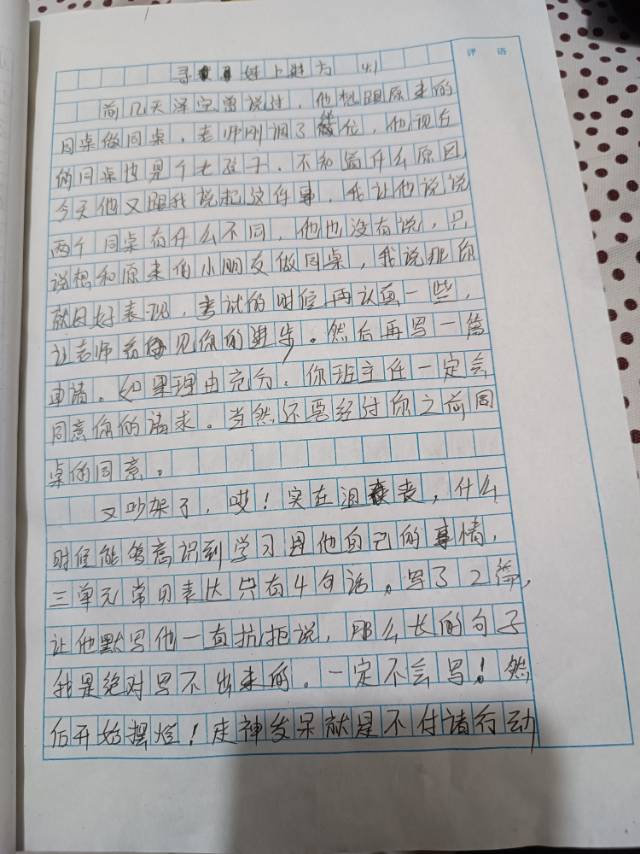 评 语
寻 好上进为 41
前几天泽宇曾说过，他想跟原来的
同桌做同桌，老师刚调了位，他现在
的同桌也是个女孩子，不知道什么原因，
今天他又跟我说起这件事，我让他说说
两个同桌有什么不同，他也没有说，只
说想和原来的小朋友做同桌，我说那你
就好好表现，考试的时候再认真一些，
让老师看见你的进步。然后再写一篇
申请。如果理由充分，你班主任一定会
同意你的请求。当然还要经过你之前同
桌的同意。
又吵架了，哎！实在沮丧，什么
时候能够意识到学习是他自己的事情，
三单元常用表达只有4句话。写了2篇，
让他默写他一直抗拒说，那么长的句子
我是绝对写不出来的。一定不会写！然
后开始摆烂！走神发呆就是不付诸行动